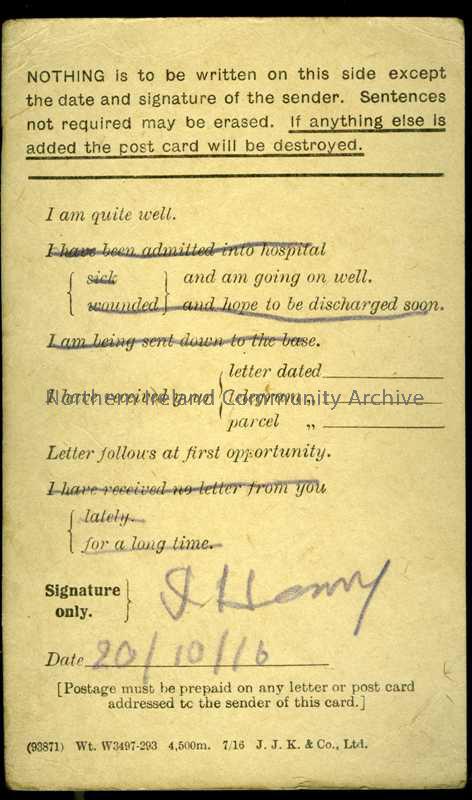 NOTHING is to be written on this side except
the date and signature of the sender. Sentences
not required may be erased. If anything else is
added the post card will be destroyed.
I am quite well.
I have been admitted into hospital
{ sick } and am going on well.
{ wounded } and hope to be discharged soon.
I am being sent down to the base.
letter dated
I have received your { telegram „
parcel „
Northern Ireland Community Archive
Letter follows at first opportunity.
I have received no letter from you
{ lately.
{ for a long time.
Signature
only. }
J Henry
Date 20/10/16
[Postage must be prepaid on any letter or post card
addressed to the sender of this card.]
(93871) Wt. W3497-293 4,500m. 7/16 J. J. K. & Co., Ltd.